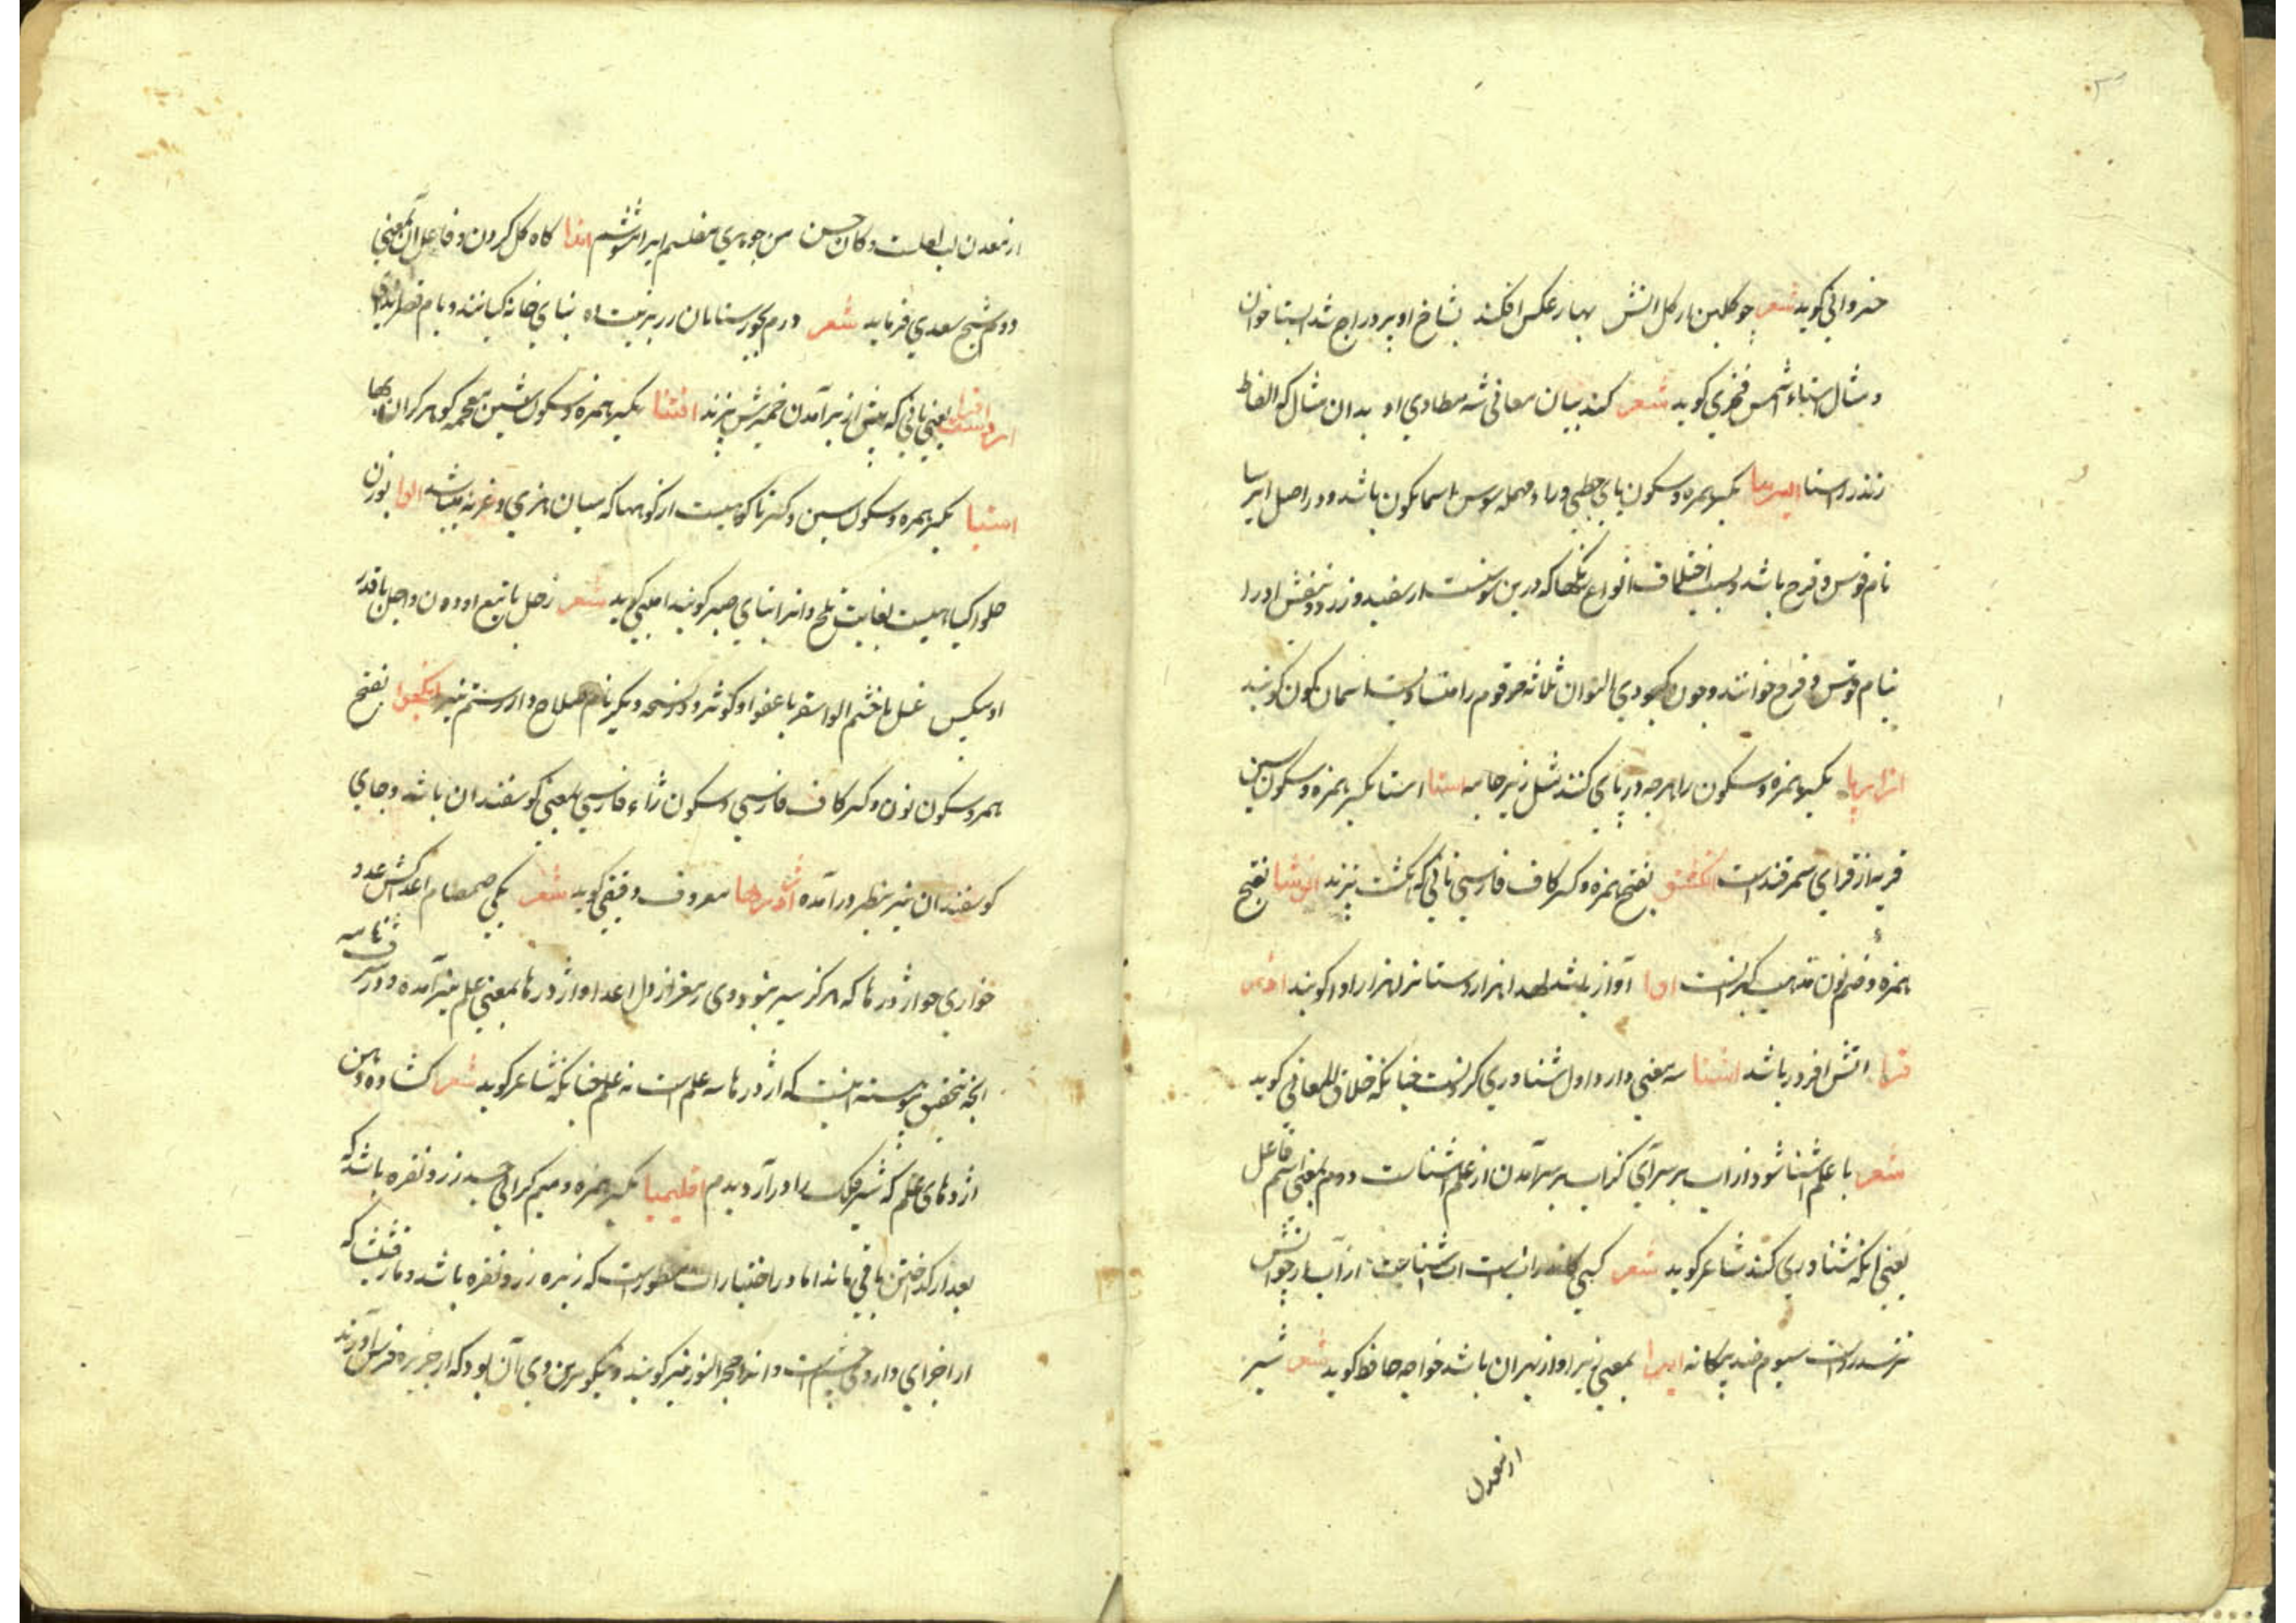 خسروانی کوید شعر چو کلبن ار کل اتش بهار عکس افکند بشاخ او بر دراج شد ابستا خوان
و مثال استاء شمس فخری کوید شعر کند بیان معانی شه مطاوی او بدان مثال که الفاظ
زند را استا ایرسا بکسر همزه و سکون یای حطی و را و مهمله سوسن اسمانکون باشد و در اصل ایرسا
نام قوس و قزح باشد و بسبب اختلاف انواع رنکها که درین سوسنست از سفید و زرد و بنفش او را
بنام قوس و قزح خوانند و چون کبودی الوان ثلاثه مرقوم را اسمان کون کویند
ازارپا بکسر همزه و سکون را هرچه در پای کنند مثل زیر جامه استا استا بکسر همزه و سکون سین
قریه از قرای سمرقند است انکشتو بفتح همزه و کسر کاف فارسی نانی که بانکشت پزند انوشا بفتح
همزه و ضم نون مذهب کبرانست اوا آواز باشد هزار دستانرا هزار اوا کویند
فزا اتش افروز باشد اشنا سه معنی دارد اول شناوری کردنست چنانکه خلاق المعانی کوید
شعر با علم اشنا شو و از آب بر سر آی کز آب بر سر آمدن از علم اشناست دوم بمعنی اسم فاعل
یعنی آنکه شناوری کند شاعر کوید شعر کسی کاندر آبست و آب اشناست از آب ار چو آتش
نترسد رواست سیوم ضد بیکانه ایرا بمعنی زیرا و از بهر آن باشد خواجه حافظ کوید شعر شیر
از معدن
از معدن لب لعلت و کان حسن من جوهری مفلسم ایرا مشوشم اندا کاه کل کردن و فاعل آن بمعنی
دوم شیخ سعدی فرماید شعر درم بجور ستانان زر بزینت ده بنای خانه کنانند و بام قصر اندای
یعنی نانی که پیش از بر آمدن خمیرش پزند بکسر همزه و سکون شین معجمه کوهر کران بها
استیا بکسر همزه و سکون سین و کسر تا کوهیست از کوهها که میان هری و غزنه میباشد الوا بوزن
حلوا کیاهیست بغایت تلخ و انرا بتازی صبر کویند امامی کوید شعر زحل با تیغ او دون و اجل با قدر
او سکین عسل با خشم الوا سقر با عفو او کوثر و در نسخه دیکر نام سلاح دار رستم نیز انکژوا بفتح
همزه و سکون نون و کسر کاف فارسی و سکون زاء فارسی بمعنی کوسفندان باشد و جای
کوسفندان نیز بنظر در آمده اژدرها معروف دقیقی کوید شعر یکی صمصام اعداکش عدو
خواری چو اژدرها که هرکز سیر نبود وی ز مغز از دل اعدا و اژدرها بمعنی علم نیز آمده و در شرفنامه
انچه بتحقیق پیوسته اینست که اژدرها سه علم است نه علم چنانکه شاعر کوید شعر کشاده دهن
اژدهای علم که شیر فلک را در آرد بدم اقلیمیا بکسر همزه و میم کرانی جسد زر و نقره باشد که
بعد از کداختن باقی ماند اما در اختیارات مسطورست که زبده زر و نقره باشد و مارقشیشا که
از اجزای داروی چشم است و انرا حجر النور نیز کویند و نیکوترین وی آن بود که از جزیره قبرس آورند